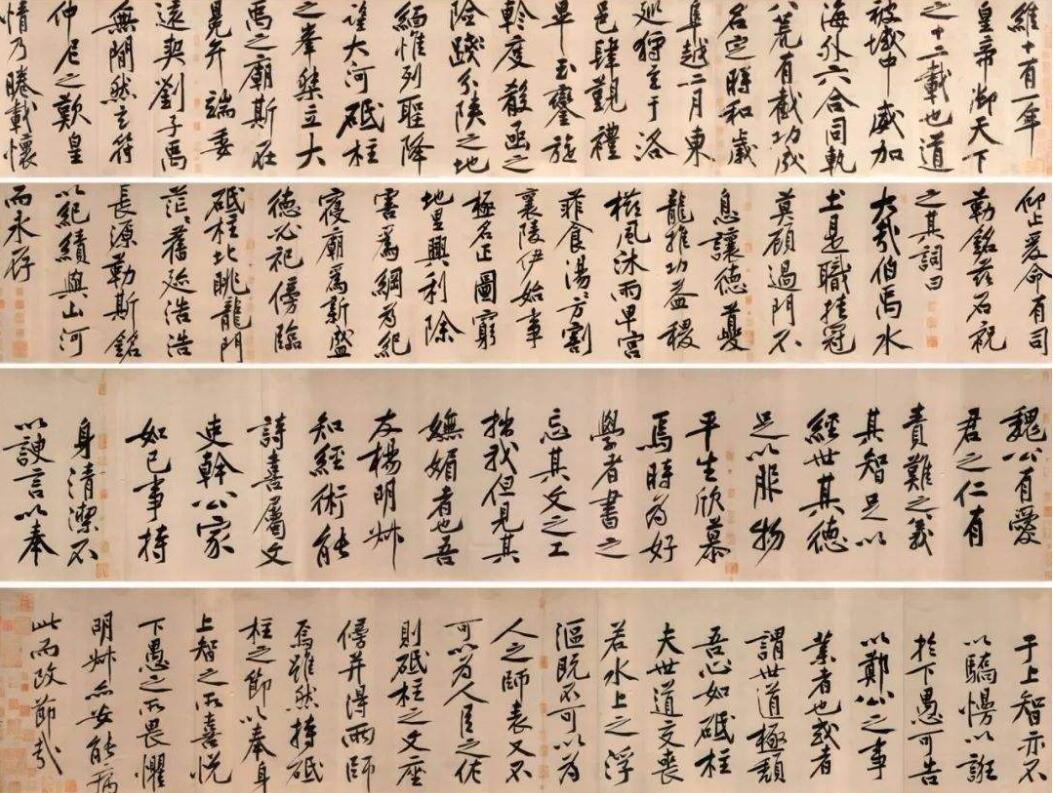 維十有一年
皇帝御天下
之十二載也道
被域中威加
海外六合同軌
八荒有截功成
名定時和歲
阜越二月東
巡狩至于洛
邑肆覲禮
畢玉鑾旋
軫度殽函之
險踐分陝之地
緬惟列聖降
望大河砥柱
之峯桀立大
禹之廟斯在
冕弁端委
遠契劉子禹
無間然玄符
仲尼之歎皇
情乃睠載懷
仰止爰命有司
勒銘茲石祝
之其詞曰
大哉伯禹水
土是職挂冠
莫顧過門不
息讓德夔
龍推功益稷
櫛風沐雨卑宮
菲食湯〻方割
襄陵伊始事
極名正圖窮
地里興利除
害爲綱爲紀
寢廟爲新盛
德必祀傍臨
砥柱北眺龍門
茫〻舊迹浩浩
長源勒斯銘
以紀績與山河
而永存
魏公有愛
君之仁有
責難之義
其智足以
經世其德
足以服物
平生欣慕
焉時爲好
學者書之
忘其文之工
拙我但見其
嫵媚者也吾
友楊明叔
知經術能
詩喜屬文
吏幹公家
如己事持
身清潔不
以諛言以奉
于上智亦不
以驕慢以誑
於下愚可告
以鄭公之事
業者也或者
謂世道極頹
吾心如砥柱
夫世道交喪
若水上之浮
漚既不可以爲
人之師表又不
可以爲人臣之佐
則砥柱之文座
傍并得兩師
焉雖然持砥
柱之節以奉身
上智之所喜悅
下愚之所畏懼
明叔亦安能病
此而改節哉